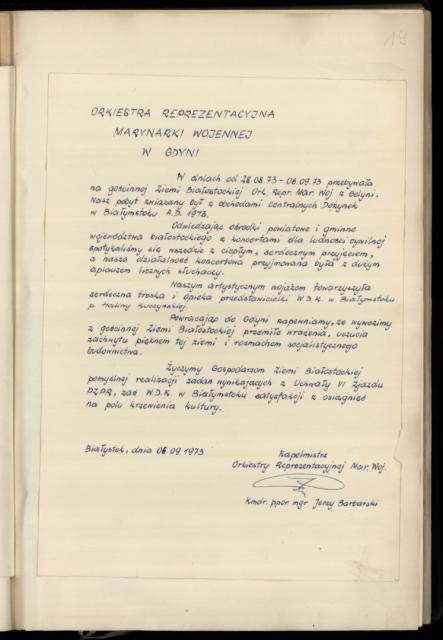 19
ORKIESTRA REPREZENTACYJNA
MARYNARKI WOJENNEJ
W GDYNI
W dniach od 28.08.73 – 06.09.73 przebywała
na gościnnej Ziemi Białostockiej Ork. Repr. Mar. Woj z Gdyni.
Nasz pobyt związany był z obchodami Centralnych Dożynek
w Białymstoku A.D. 1973.
Odwiedzając ośrodki powiatowe i gminne
województwa białostockiego z koncertami dla ludności cywilnej
spotykaliśmy się wszędzie z ciepłym, serdecznym przyjęciem,
a nasza działalność koncertowa przyjmowana była z dużym
aplauzem licznych słuchaczy.
Naszym artystycznym wojażom towarzyszyła
serdeczna troska i opieka przedstawicielki W.D.K. w Białymstoku
p. Haliny
Powracając do Gdyni zapewniamy, że wywozimy
z gościnnej Ziemi Białostockiej przemiłe wrażenia, uczucia
zachwytu pięknem tej ziemi i rozmachem socjalistycznego
budownictwa.
Życzymy Gospodarzom Ziemi Białostockiej
pomyślnej realizacji zadań wynikających z Uchwały VI Zjazdu
PZPR, zaś W.D.K. w Białymstoku satysfakcji z osiągnięć
na polu krzewienia kultury.
Białystok, dnia 06 09 1973
Kapelmistrz
Orkiestry Reprezentacyjnej Mar. Woj.
kmdr. ppor mgr Jerzy Barbarski